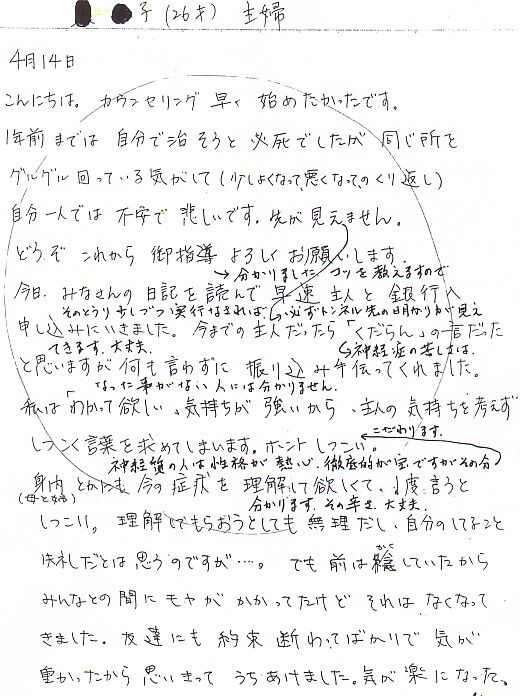 子(26才) 主婦
4月14日
こんにちは。カウンセリング 早く 始めたかったです。
1年前 までは 自分で治そうと 必死でしたが 同じ所を
グルグル 回っている気がして(少しよくなって、悪くなってのくり返し)
自分一人では 不安で 悲しいです。先が見えません。
どうぞ これから 御指導 よろしく お願いします。
→分かりました コツを教えますので
今日、みなさんの 日記を 読んで 早速 主人と 銀行へ
そのとうり少しづつ実行なされば、必ずトンネル先の明かりが見え
申し込みにいきました。今までの主人だったら「くだらん」の一言だった
てきます。大丈夫。 神経症の苦しさは、
と思いますが 何も言わずに 振り込み手伝ってくれました。
なった事がない人には分かりません。
私は「わかって欲しい」気持ちが 強いから、主人の 気持ちを考えず
こだわります。
しつこく言葉を求めてしまいます。ホント しつこい。
神経質の人は性格が熱心、徹底的が宝ですがその分
身内 とかにも 今の症状を 理解して欲しくて、1度言うと
(母と姉) 分かります。その辛さ、大丈夫。
しつこい。理解してもらおうとしても 無理だし、自分のしてること
失礼だとは 思うのですが…。でも 前は隠していたから
みんなとの間に モヤが かかってたけど それは なくなって
きました。友達にも 約束 断わってばかりで 気が
重かったから 思いきって うちあけました。気が 楽になった。